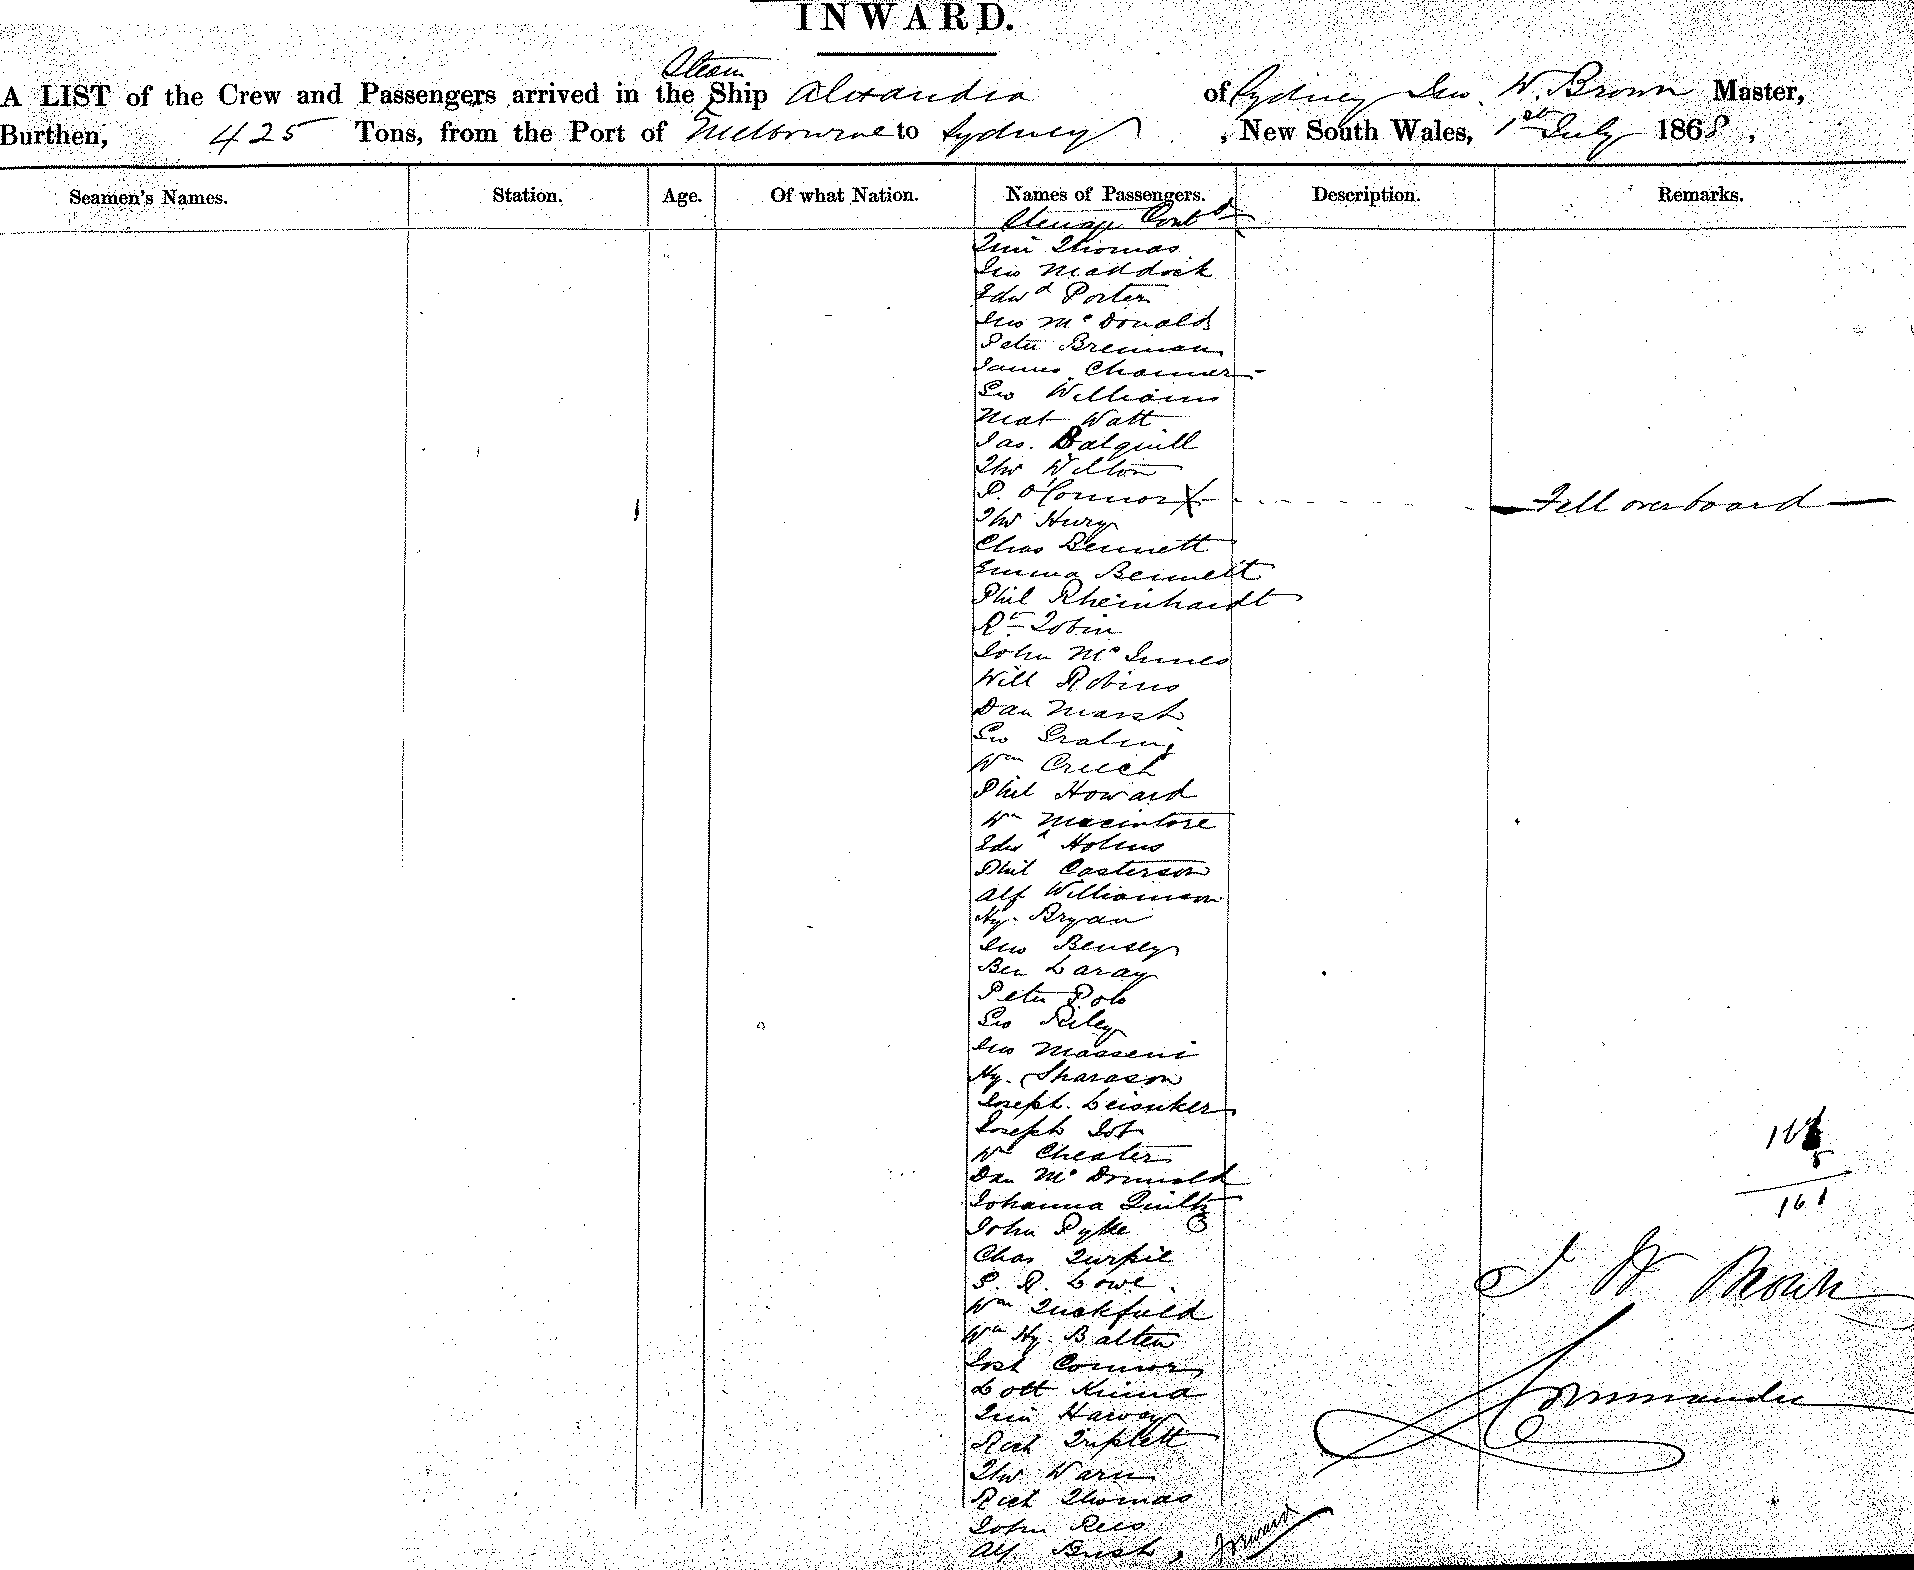 INWARD.
Steam
A LIST of the Crew and Passengers arrived in the Ship Alexandra of Sydney W. Brown Master,
Burthen, 425 Tons, from the Port of Melbourne to Sydney, New South Wales, 1st July 1868,
Seamen's Names. Station. Age. Of what Nation. Names of Passengers. Description. Remarks.
Steerage Contd
Thomas
Jno Maddock
Edwd Porter
Jno Mc Donald
Peter Brennan
James
Geo Williams
Mat Watt
Jas. Dalquill
Thos Wilton
P. O'Connor X Fell overboard
Thos
Chas Bennett
Emma Bennett
Phil Rheinhardt
Rd Tobin
John Mc Innes
Will Robins
Dan Marsh
Geo
Wm Creech
Phil Howard
Wm Macintore
Edwd Holms
Phil Casterson
Alf Williamson
Hy. Bryan
Jno Bensley
Ben Laray
Peter Polo
Geo Riley
Jno Masseni
Hy. Sharason
Joseph
Joseph
Wm Chester
Dan Mc Donnald
Johanna Quilty
John Pyke
Chas Turpie
P. R. Lowe
Wm Tuckfield
Wm Hy. Balten
Josh Connor
Harvey
Rich Triplett
Thos Warn
Rich Thomas
John Rees
Alf Bush, forward
161
J W Brown
Commander